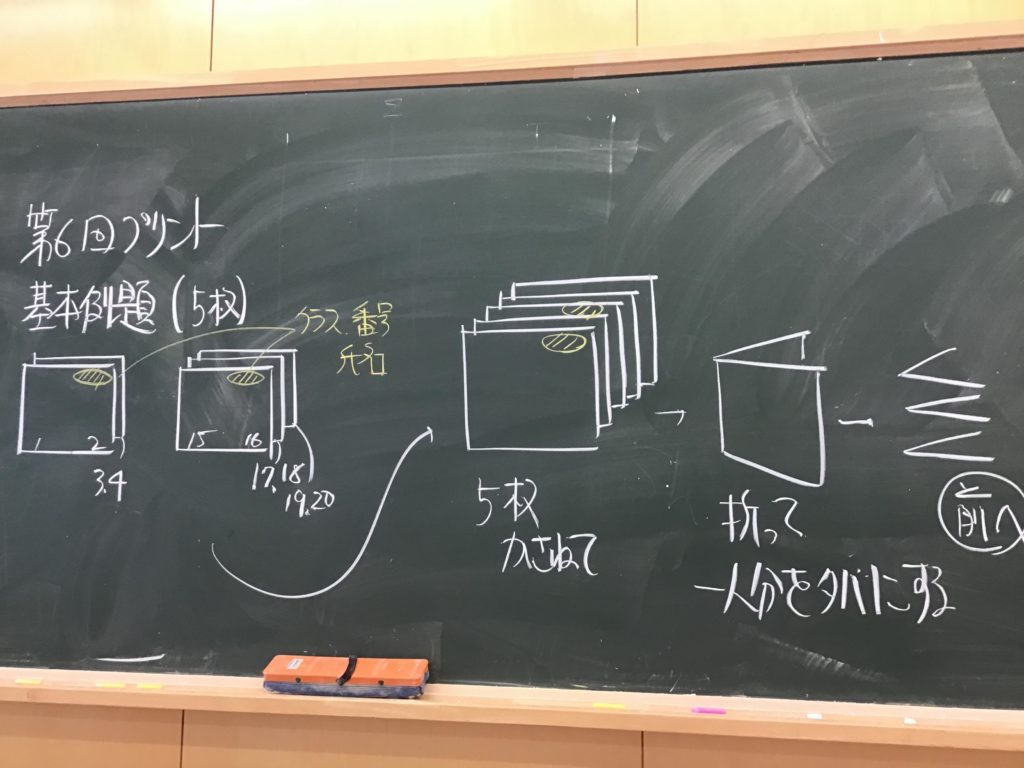 第6回プリント
基本例題(5枚)
クラス.番号
氏名
1 2
3.4
15 16
17.18
19.20
5枚
かさねて
折って
一人分をタバにする
と
前へ